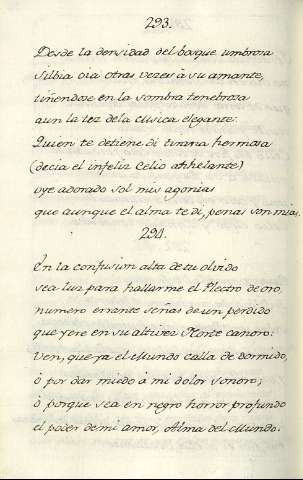 293.
Desde la densidad del bosque umbrosa
silbia oia otras vezes à su amante,
uñendose en la sombra tenebrosa
aun la tez dela Musica elegante:
Quien te detiene di tirana hermosa
(decia el infeliz Celio anhelante)
oye adorado sol mis agonias
que aunque el alma te di, penas son mias.
294.
En la confusion alta de tu olvido
sea luz para hallarme el Plectro de oro,
numero errante señas de un perdido
que yere en su altivez Norte canoro:
Ven, que ya el Mundo calla de dormido,
ò por dar miedo à mi dolor sonoro;
ò porque sea en negro horror profundo
el poder de mi amor, Alma del Mundo.